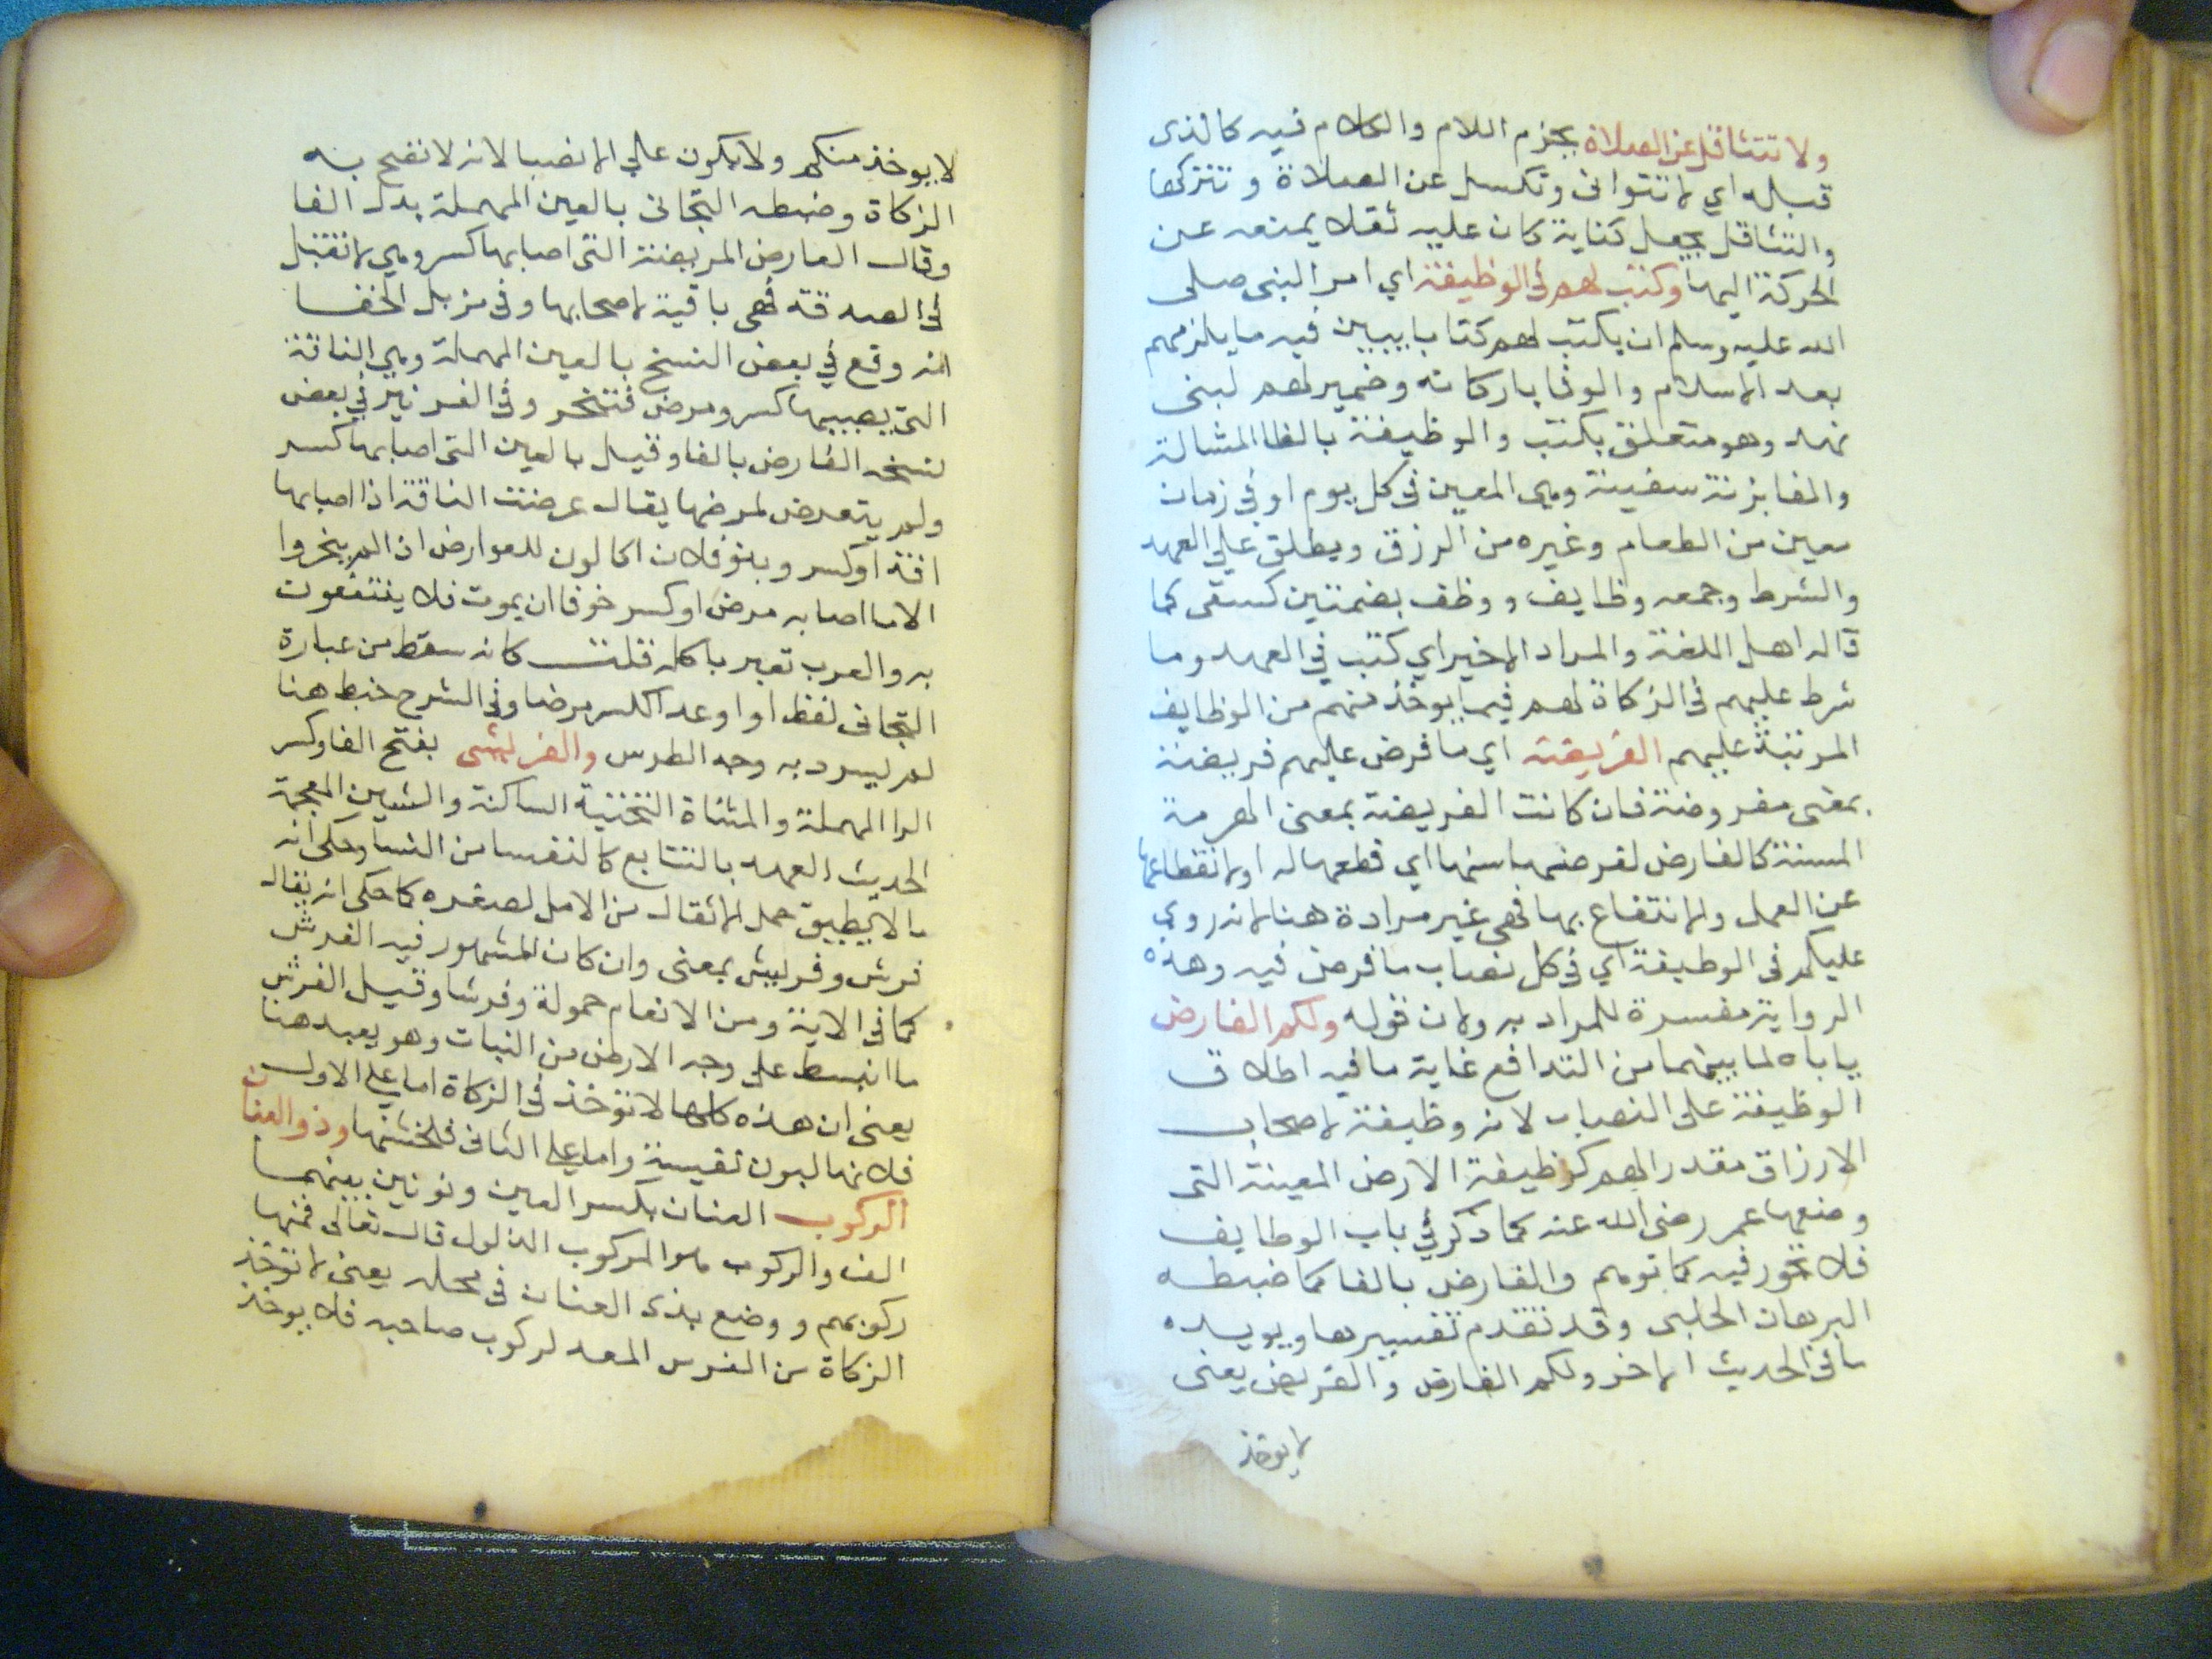 ولا تتثاقل عن الصلاة بجزم اللام والكلام فيه كالذى
قبله اي لا تتوانى وتكسل عن الصلاة وتتركها
والتثاقل بجعل كناية كان عليه ثقلا يمنعه عن
الحركة اليها وكتب لهم في الوظيفة اي امر النبى صلى
الله عليه وسلم ان يكتب لهم كتابا يبين فيه ما يلزمهم
بعد الاسلام والوفا باركانه وضمير لهم لبنى
نهد وهو متعلق بكتب والوظيفة بالظا المشالة
والفا بزنة سفينة وهى المعين في كل يوم او في زمان
معين من الطعام وغيره من الرزق ويطلق علي العهد
والشرط وجمعه وظايف ووظف بضمتين كسقى كما
قاله اهل اللغة والمراد الاخير اي كتب في العهد وما
شرط عليهم في الزكاة لهم فيما يوخذ منهم من الوظايف
المرتبة عليهم الفريضة اي ما فرض عليهم فريضة
بمعنى مفروضة فان كانت الفريضة بمعنى الهرمة
المسنة كالفارض لفرضها سنها اي قطعها له او لانقطاعها
عن العمل والانتفاع بها فهى غير مرادة هنا لانه روي
عليكم فى الوظيفة اي في كل نصاب ما فرض فيه وهذه
الرواية مفسرة للمراد به ولان قوله ولكم الفارض
ياباه لما بينهما من التدافع غاية ما فيه اطلاق
الوظيفة على النصاب لانه وظيفة لاصحاب
الارزاق مقدر لهم كوظيفة الارض المعينة التى
وضعها عمر رضى الله عنه كما ذكر في باب الوظايف
فلا تجوز فيه كما توهم والفارض بالفا كما ضبطه
البرهان الحلبى وقد تقدم تفسيرها ويويده
ما فى الحديث الاخر ولكم الفارض والفريض يعنى
لا يوخذ
لا يوخذ منكم ولا يكون علي الانصبا لانه لا تفح به
الزكاة وضبطه التجانى بالعين المهملة بدل الفا
وقال العارض المريضة التى اصابها كسر وهى لا تقبل
في الصدقة فهى باقية لاصحابها وفى مزيل الخفا
انه وقع في بعض النسخ بالعين المهملة وهي الناقة
التى يصيبها كسر ومرض فتنحر وفى الغريبين في بعض
نسخه الفارض بالفا وقيل بالعين التى اصابها كسر
ولم يتعرض لمرضها يقال عرضت الناقة اذا اصابها
افة او كسر وبنو فلان اكالون للعوارض اذا لم ينحروا
الا ما اصابه مرض او كسر خوفا ان يموت فلا ينتفعون
به والعرب تعير باكله قلت كانه سقط من عبارة
التجانى لفظ او او عد الكسر مرضا وفى الشرح خبط هنا
لم ليسود به وجه الطرس والفريش بفتح الفا وكسر
الرا المهملة والمثناة التحتية الساكنة والشين المعجمة
الحديث العهد بالنتاج كالنفسا من النسا وحكى انه
ما لا يطيق حمل الاثقال من الابل لصغره كما حكى انه يقال
فرش وفريش بمعنى وان كان المشهور فيه الفرش
كما في الاية ومن الانعام حمولة وفرشا وقيل الفرش
ما انبسط على وجه الارض من النبات وهو بعيد هنا
يعنى ان هذه كلها لا تؤخذ فى الزكاة اما علي الاول
فلانها لبون نفيسة واما علي الثانى فلخستها وذو العنان
الركوب العنان بكسر العين ونونين بينهما
الف والركوب هو المركوب الذلول قال تعالى فمنها
ركوبهم ووضع بذى العنان فى محله يعنى لا تؤخذ
الزكاة من الفرس المعد لركوب صاحبه فلا يوخذ